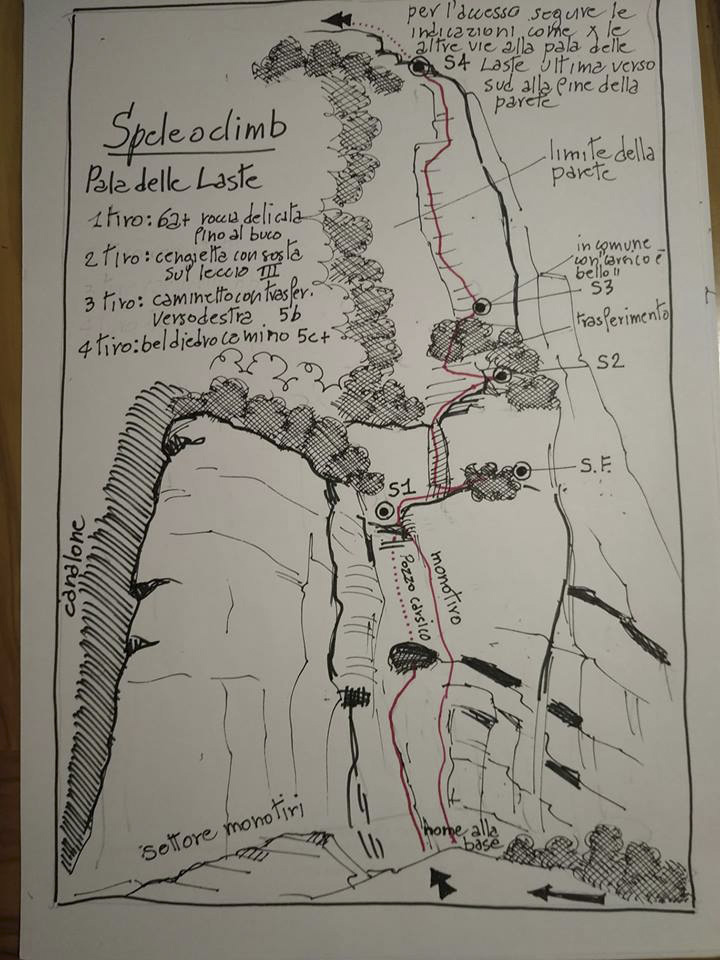 per l'accesso seguire le
indicazioni come x le
altre vie alla pala delle
Laste ultima verso
sud alla fine della
parete
S4
Speleoclimb
Pala delle Laste
1 tiro: 6a+ roccia delicata
fino al buco
2 tiro: cengietta con sosta
sul leccio III
3 tiro: caminetto con trasfer.
verso destra 5b
4 tiro: bel diedro camino 5c+
limite della
parete
in comune
con carsico è
bello!!
S3
trasferimento
S2
S.F.
S1
canalone
Pozzo carsico
monotiro
settore monotiri
nome alla
base